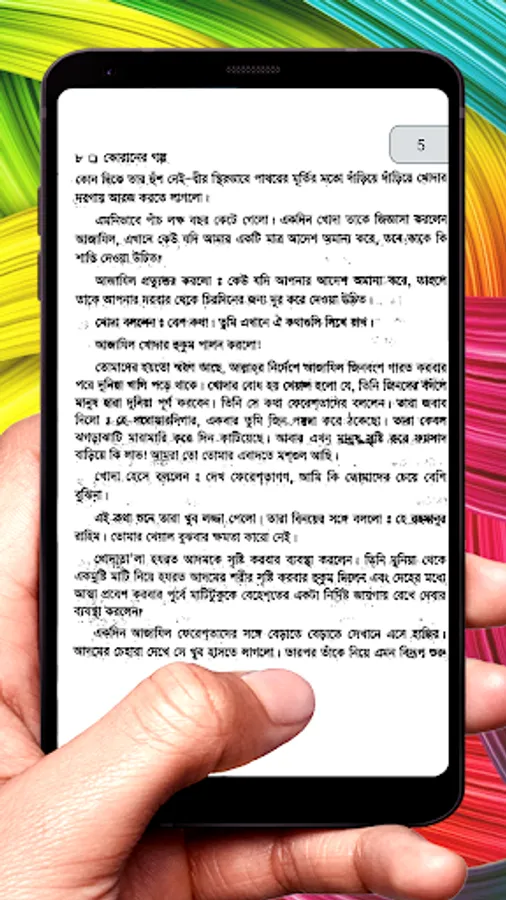 5
৮ ❑ কোরানের গল্প
কোন দিকে তার হুঁশ নেই–ধীর স্থিরভাবে পাথরের মূর্তির মতো দাঁড়িয়ে দাঁড়িয়ে খোদার
দরগায় আরজ করতে লাগলো।
এমনিভাবে পাঁচ লক্ষ বছর কেটে গেলো। একদিন খোদা তাকে জিজ্ঞাসা করলেন
আজাযিল, এখানে কেউ যদি আমার একটি মাত্র আদেশ অমান্য করে, তবে তাকে কি
শাস্তি দেওয়া উচিত?
আজাযিল প্রত্যুত্তর করলো : কেউ যদি আপনার আদেশ অমান্য করে, তাহলে
তাকে আপনার দরবার থেকে চিরদিনের জন্য দূর করে দেওয়া উচিত।
খোদা বললেন : বেশ কথা। তুমি এখানে ঐ কথাগুলি লিখে রাখ।
আজাযিল খোদার হুকুম পালন করলো!
তোমাদের হয়তো স্মরণ আছে, আল্লাহ্‌র নির্দেশে আজাযিল জিনবংশ গারত করবার
পরে দুনিয়া খালি পড়ে থাকে। খোদার বোধ হয় খেয়াল হলো যে, তিনি জিনদের বদলে
মানুষ দ্বারা দুনিয়া পূর্ণ করবেন। তিনি সে কথা ফেরেশ্‌তাদের বললেন। তারা জবাব
দিলো : হে পরোয়ারদিগার, একবার তুমি জিন পয়দা করে ঠকেছো। তারা কেবল
ঝগড়াঝাটি মারামারি করে দিন কাটিয়েছে। আবার এখন মানুষ সৃষ্টি করে ফ্যাসাদ
বাড়িয়ে কি লাভ! আমরা তো তোমার এবাদতে মশ্‌গুল আছি।
খোদা হেসে বললেন : দেখ ফেরেশ্‌তাগণ, আমি কি তোমাদের চেয়ে বেশি
বুঝিনা।
এই কথা শুনে তারা খুব লজ্জা পেলো। তারা বিনয়ের সঙ্গে বললো : হে রহমানুর
রাহিম। তোমার খেয়াল বুঝবার ক্ষমতা কারো নেই।
খোদাতা'লা হযরত আদমকে সৃষ্টি করবার ব্যবস্থা করলেন। তিনি দুনিয়া থেকে
একমুষ্টি মাটি নিয়ে হযরত আদমের শরীর সৃষ্টি করবার হুকুম দিলেন এবং দেহের মধ্যে
আত্মা প্রবেশ করবার পূর্বে মাটিটুকুকে বেহেশ্‌তের একটা নির্দিষ্ট জায়গায় রেখে দেবার
ব্যবস্থা করলেন?
একদিন আজাযিল ফেরেশ্‌তাদের সঙ্গে বেড়াতে বেড়াতে সেখানে এসে হাজির।
আদমের চেহারা দেখে সে খুব হাসতে লাগলো। তারপর তাঁকে নিয়ে এমন বিদ্রূপ শুরু